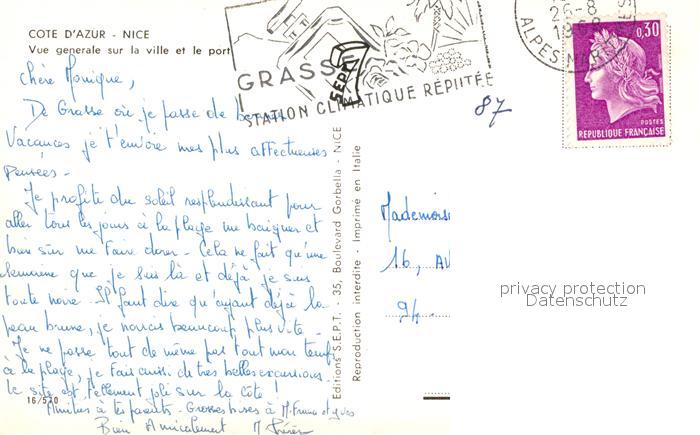 COTE D'AZUR - NICE
Vue generale sur la ville et le port
GRASSE
STATION CLIMATIQUE RÉPUTÉE
26-8
1968
ALPES MARITIMES
0,30
POSTES
REPUBLIQUE FRANÇAISE
Chère Monique,
De Grasse où je passe de bonnes
Vacances je t'envoie mes plus affectueuses
Pensées -
Je profite du soleil resplendissant pour
aller tous les jours à la plage me baigner et
bien sûr me faire dorer - Cela ne fait qu'une
semaine que je suis là et déjà je suis
toute noire - Il faut dire qu'ayant déjà la
peau brune, je noircis beaucoup plus vite -
Je ne passe tout de même pas tout mon temps
à la plage, je fais aussi de très belles excursions.
le site est tellement joli sur la côte !
16/510
Amitiés à tes parents - Grosses bises à
Bien Amicalement
Editions S.E.P.T. - 35, Boulevard Gorbella - NICE
Reproduction interdite - Imprimé en Italie
SEPT
87
16, AV
94
privacy protection
Datenschutz